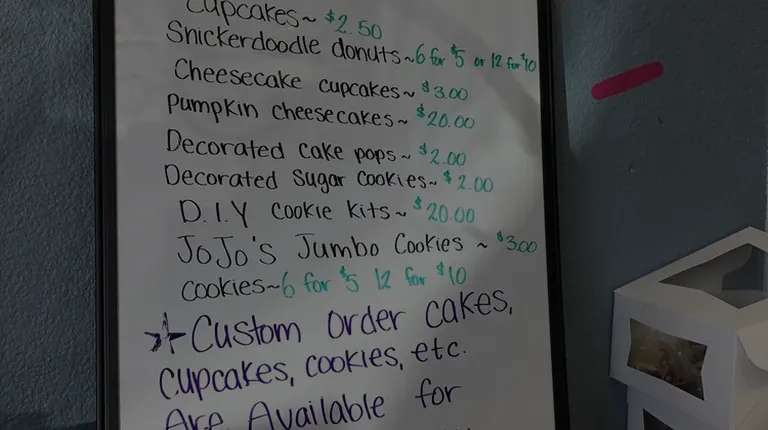 Cupcakes~ $2.50
Snickerdoodle donuts~6 for $5 or 12 for $10
Cheesecake cupcakes~ $3.00
Pumpkin cheesecakes~ $20.00
Decorated cake pops~ $2.00
Decorated Sugar Cookies~ $2.00
D.I.Y Cookie Kits~ $20.00
JoJo's Jumbo Cookies ~ $3.00
cookies~6 for $5 12 for $10
Custom Order cakes,
cupcakes, cookies, etc.
Are Available for